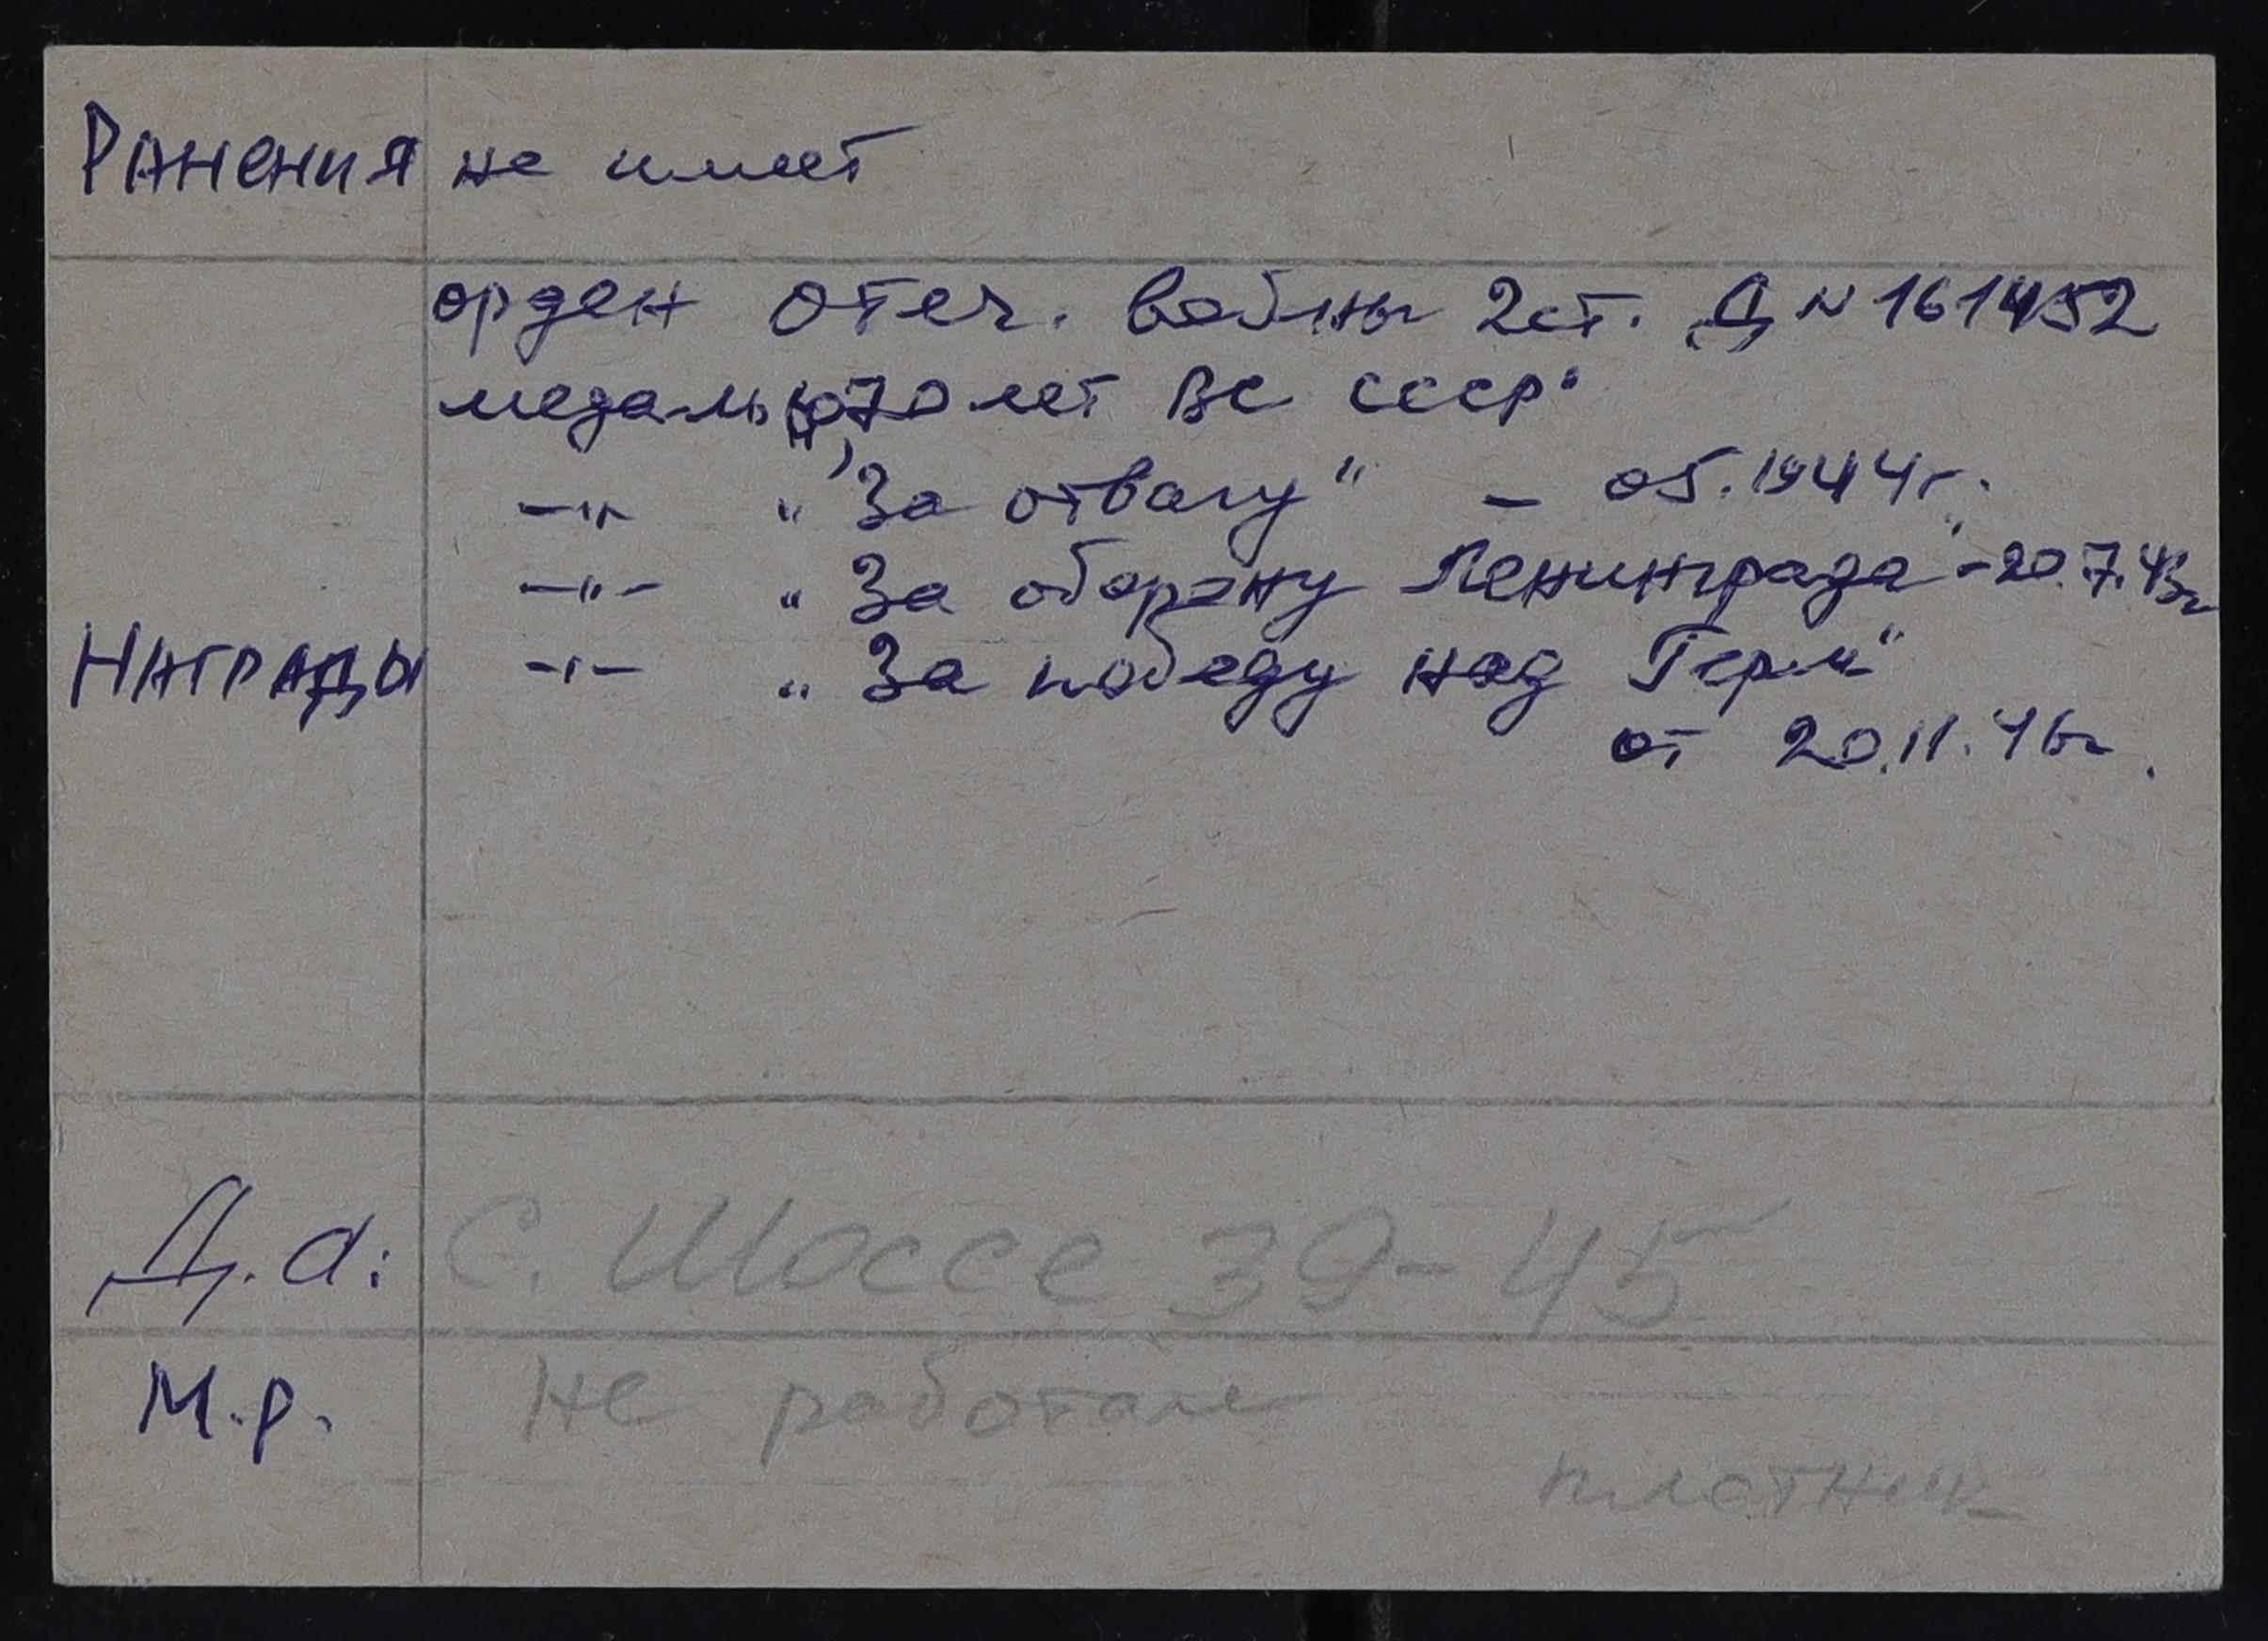 Ранения не имеет
орден Отеч. войны 2 ст. Д № 161452
медаль "70 лет ВС СССР"
—"— "За отвагу" – 05.1944 г.
—"— "За оборону Ленинграда" – 20.7.43 г
Награды —"— "За победу над Герм"
от 20.11.46 г.
Д.а: С. Шоссе 39-45
М.р. не работает
плотник